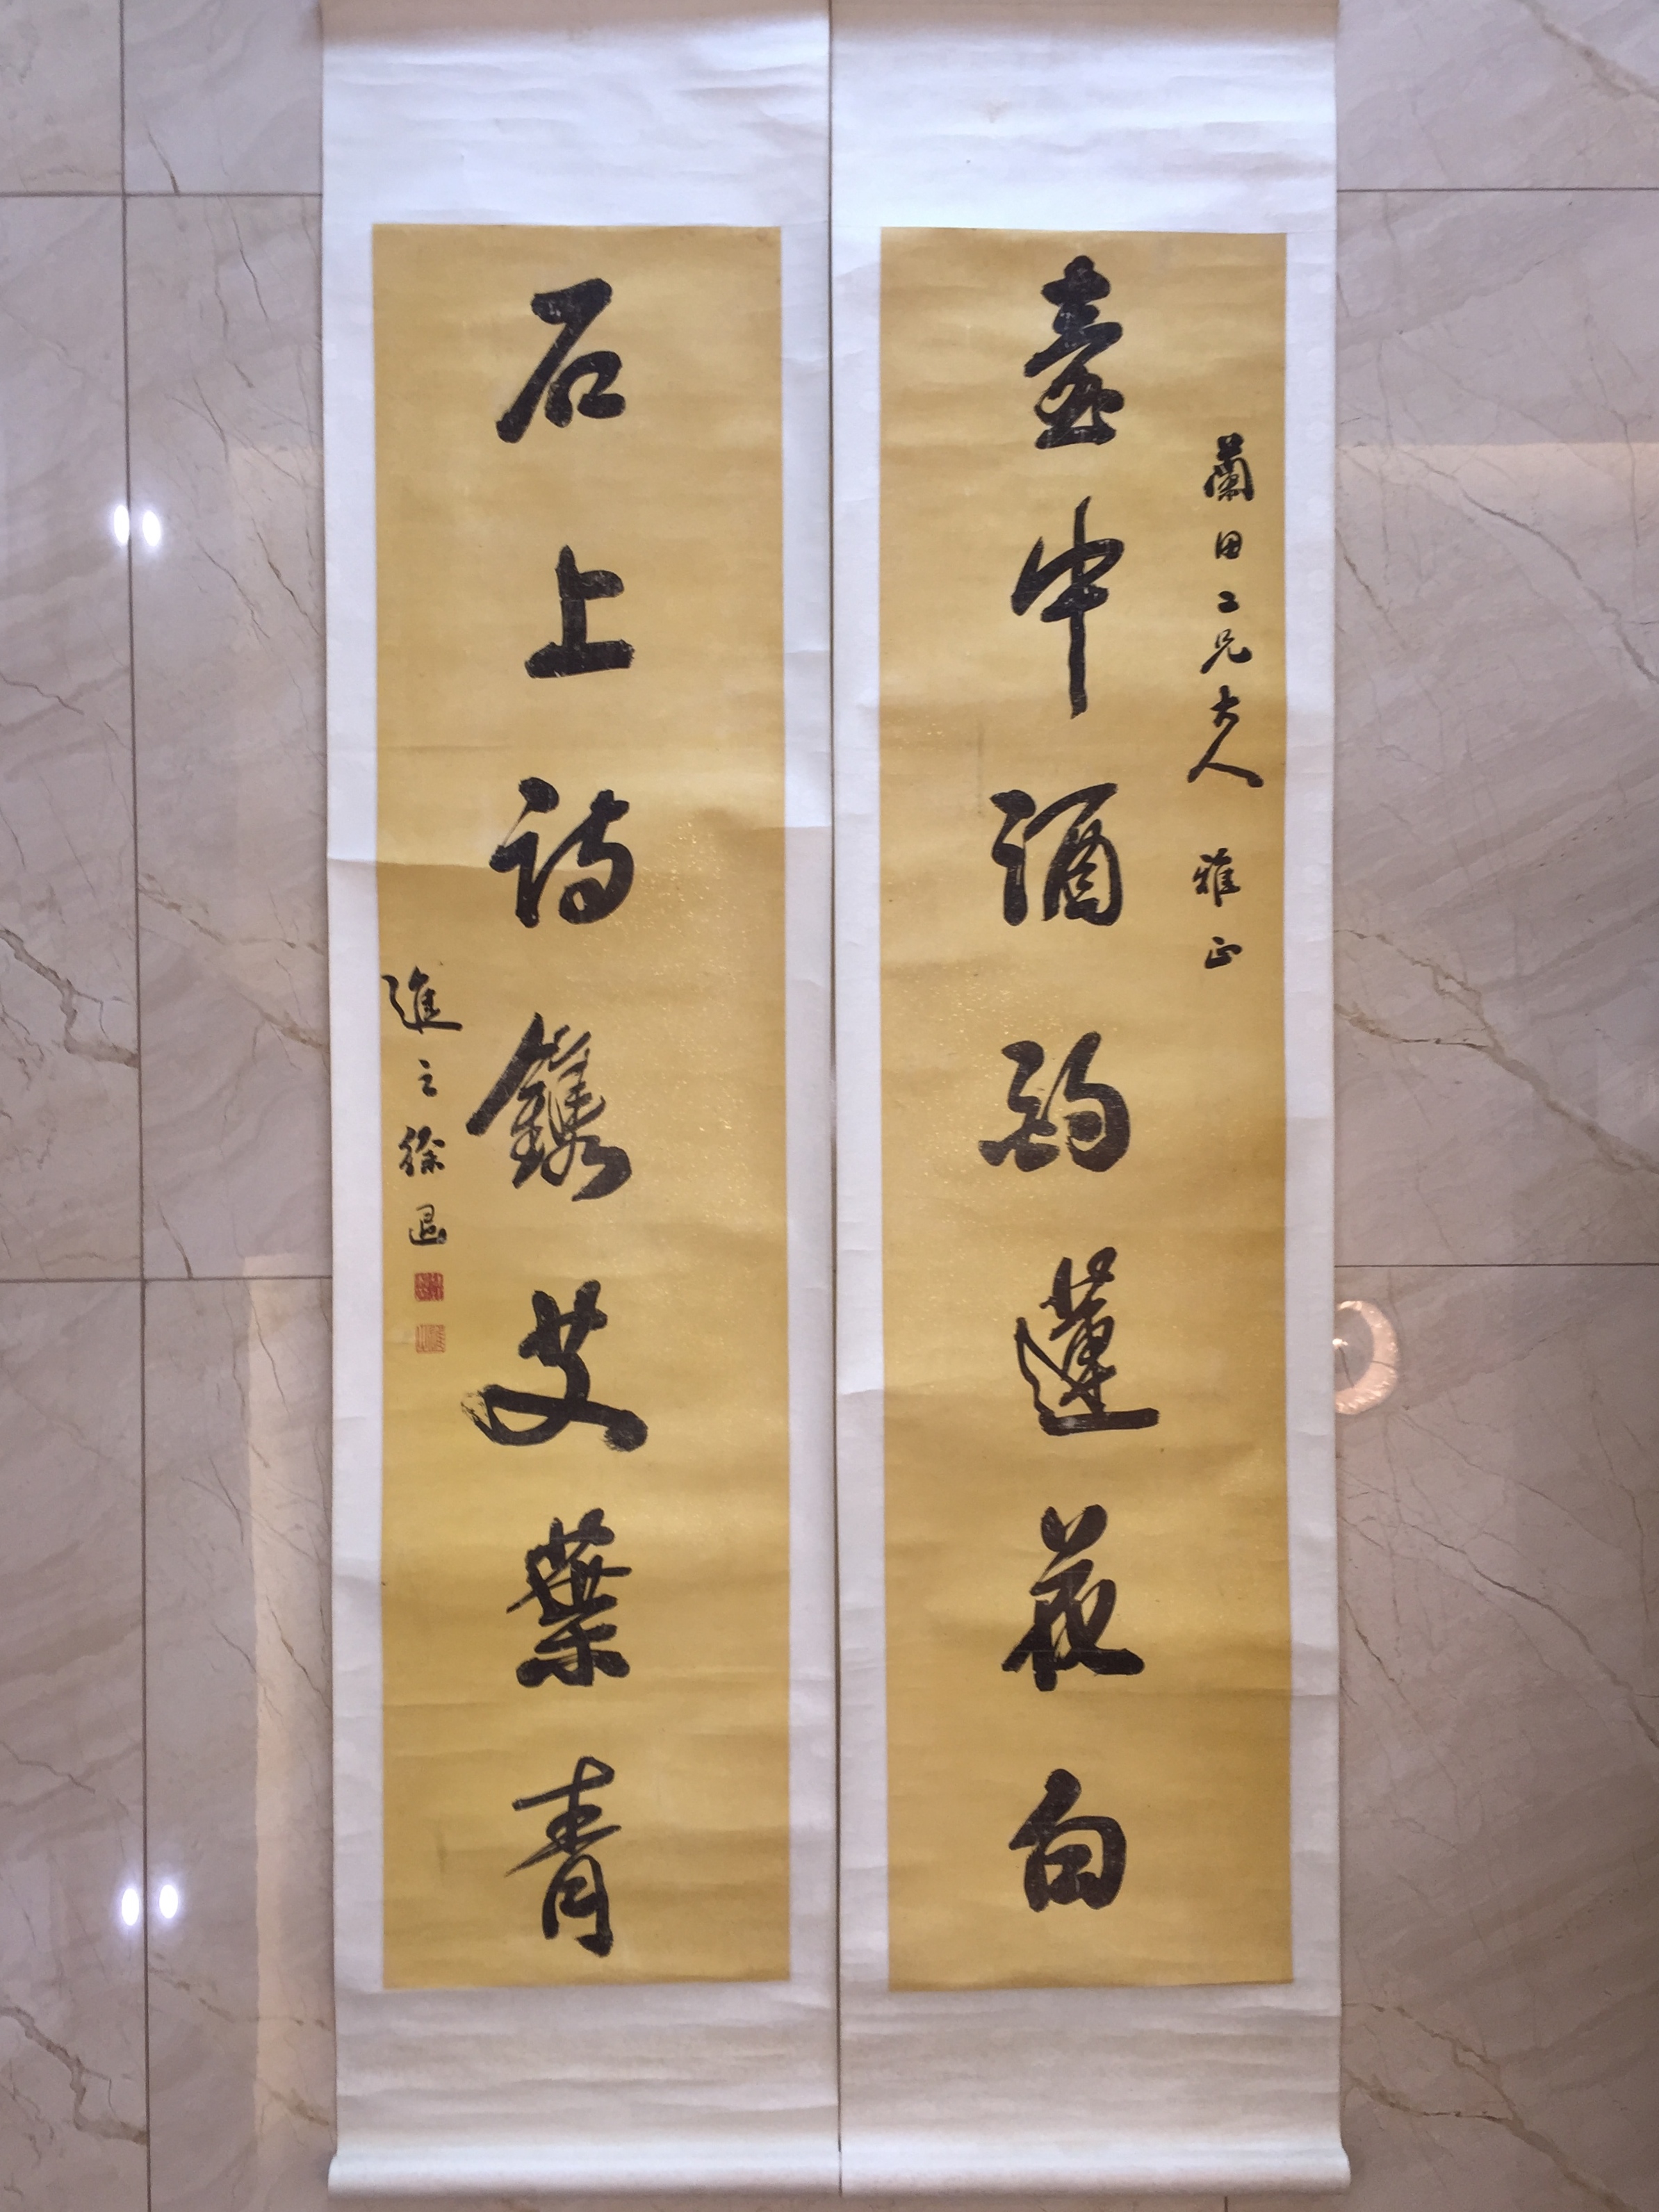 蘭田二兄大人 雅正
壺中酒韵蓮花白
石上詩鐫艾葉青
進之徐退